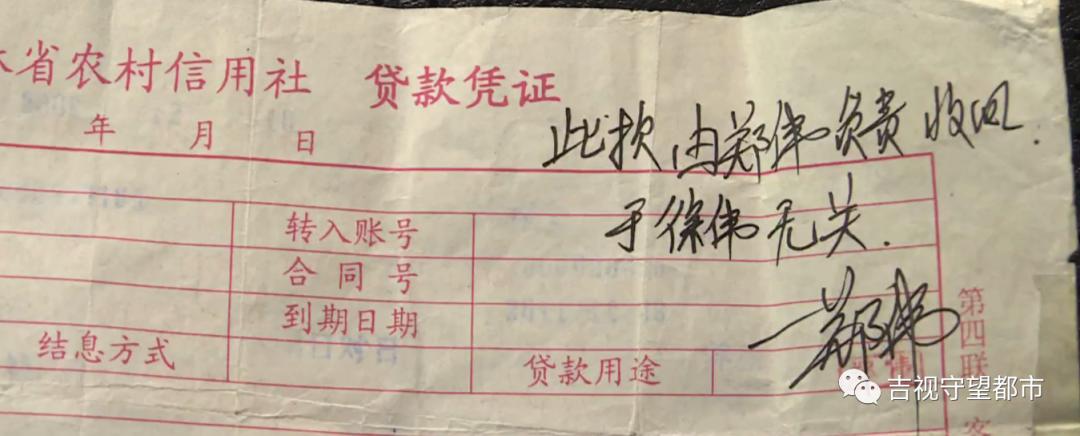 省农村信用社 贷款凭证
年 月 日
此款由郑伟负责收回.
于徐伟无关.
郑伟
转入账号
合同号
到期日期
结息方式
贷款用途
第四联
吉视守望都市